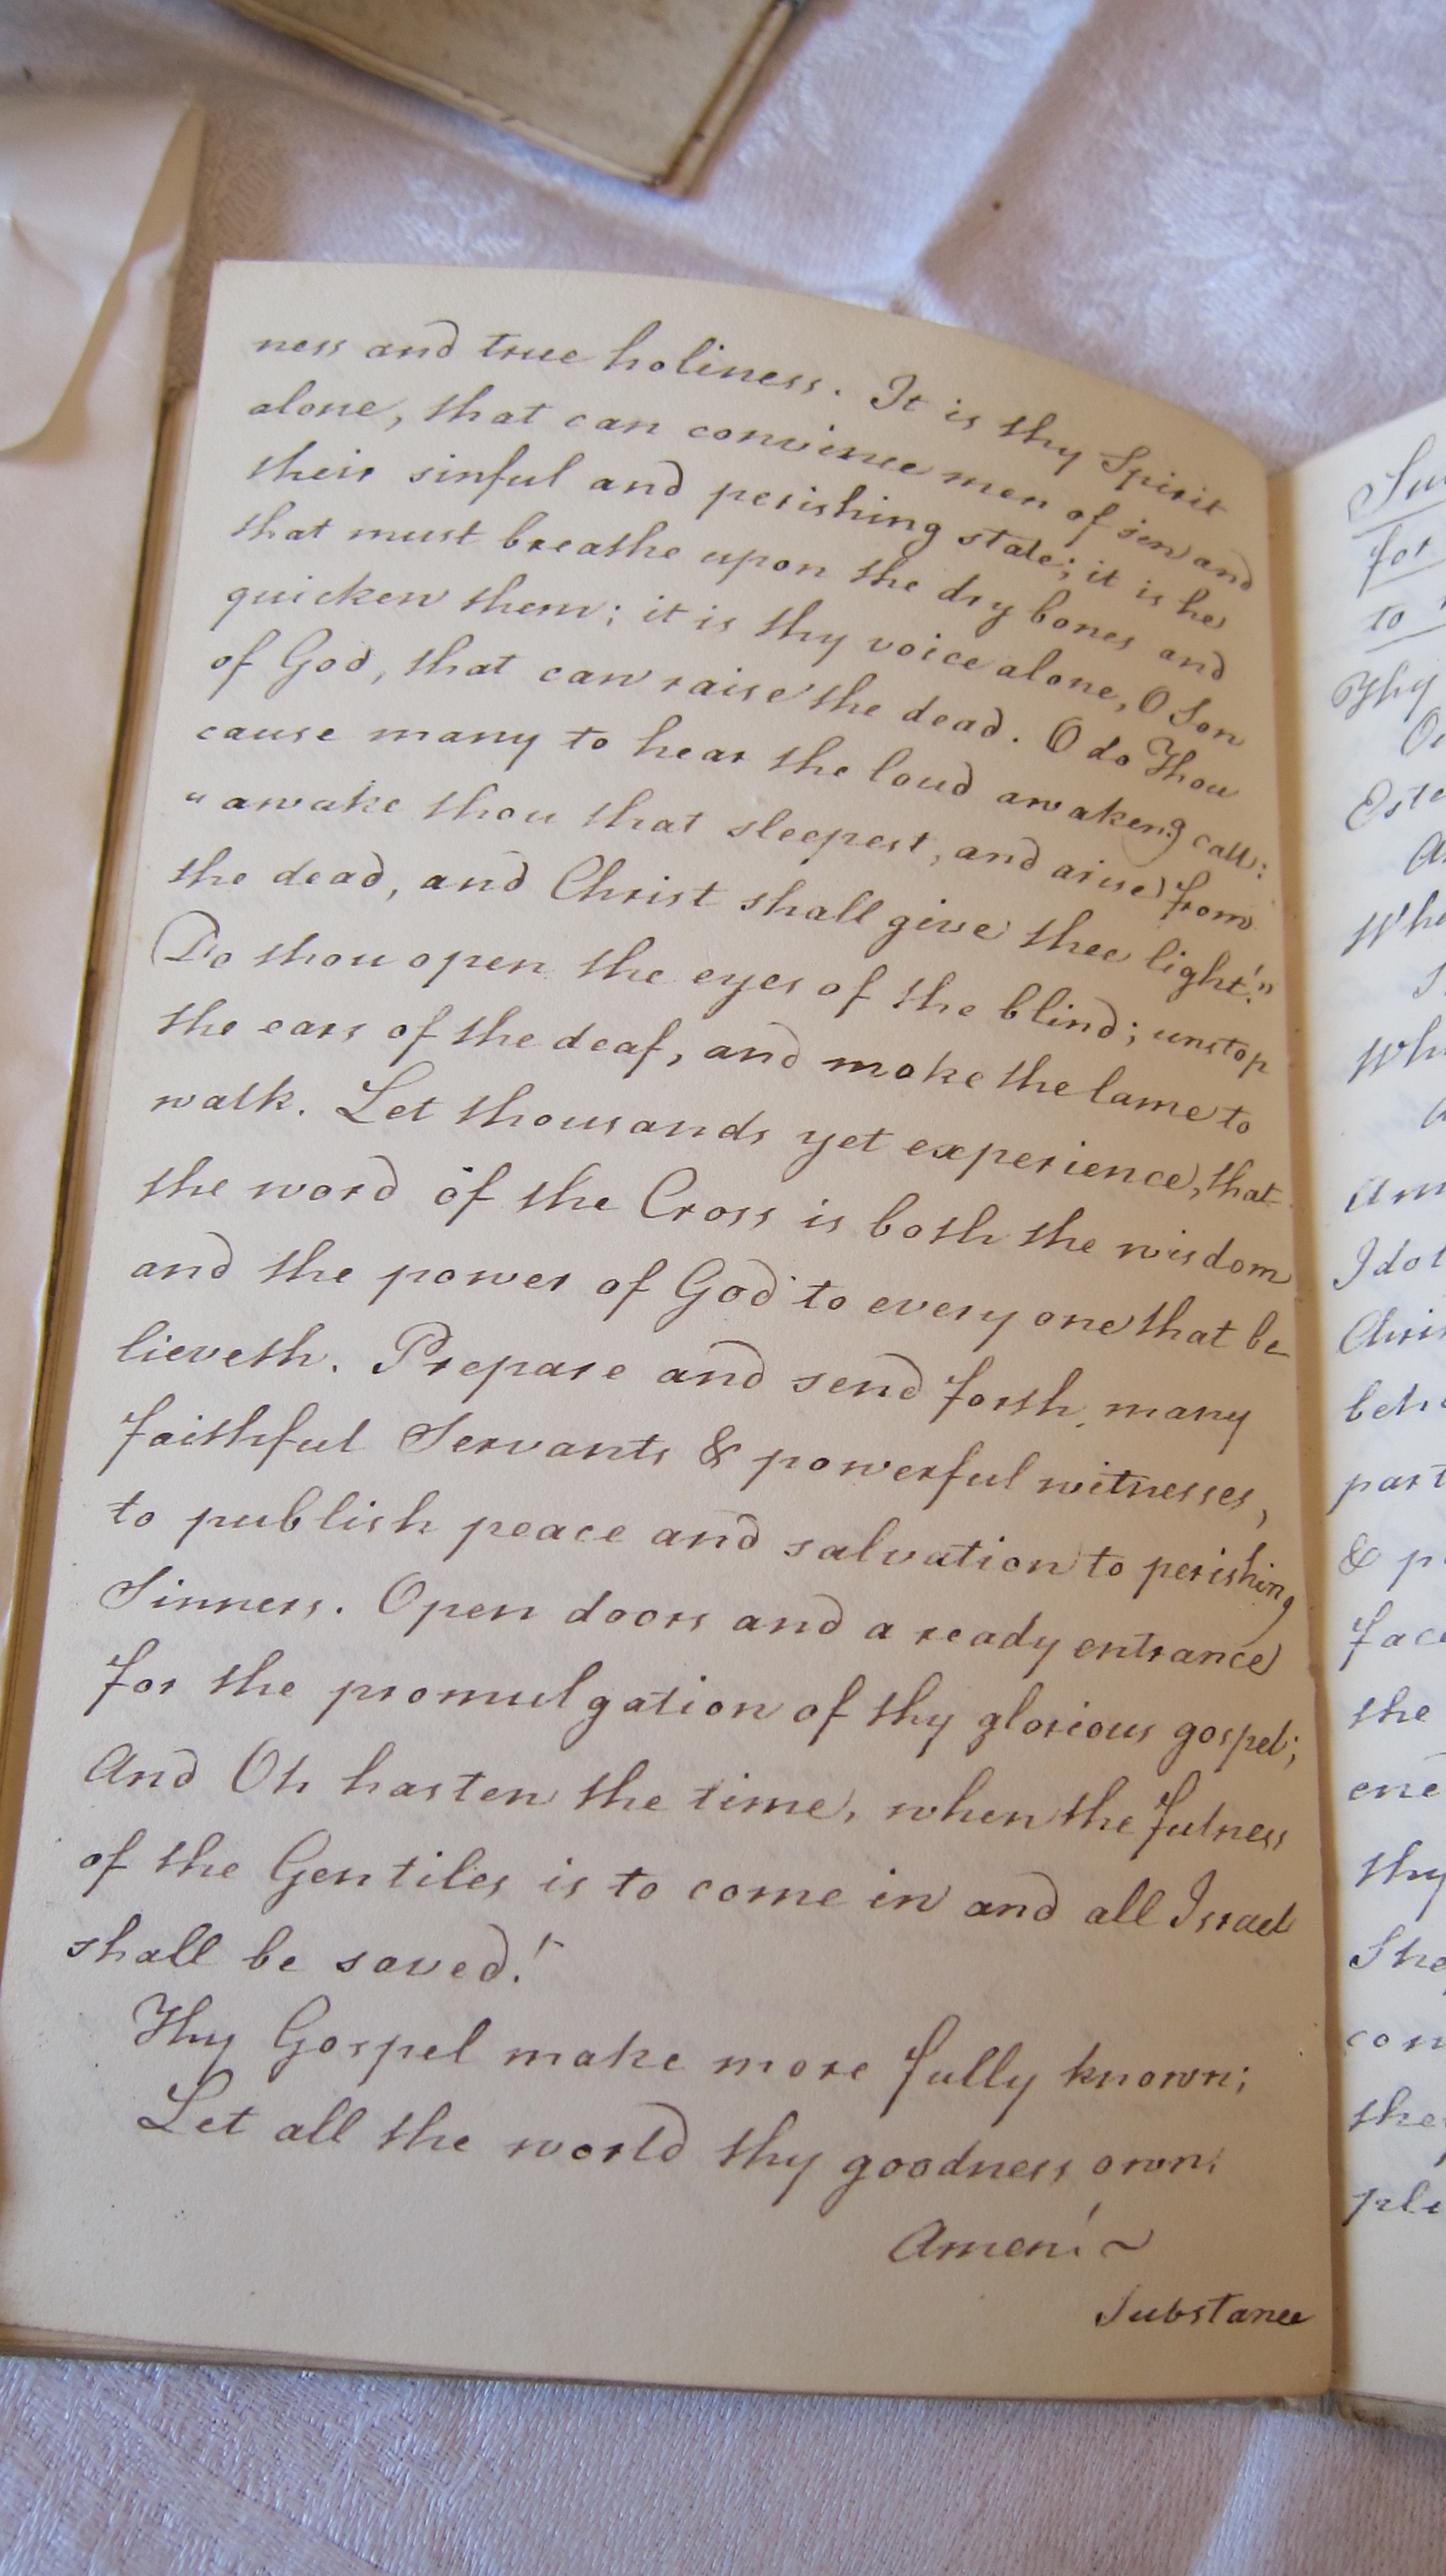 ness and true holiness. It is thy Spirit
alone, that can convince men of sin and
their sinful and perishing state; it is he
that must breathe upon the dry bones and
quicken them; it is thy voice alone, O Son
of God, that can raise the dead. O do Thou
cause many to hear the loud awakeng call:
"awake thou that sleepest, and arise from
the dead, and Christ shall give thee light!"
Do thou open the eyes of the blind; unstop
the ears of the deaf, and make the lame to
walk. Let thousands yet experience, that
the word of the Cross is both the wisdom
and the power of God to every one that be
lieveth. Prepare and send forth many
faithful Servants & powerful witnesses,
to publish peace and salvation to perishing
Sinners. Open doors and a ready entrance
for the promulgation of thy glorious gospel;
And Oh hasten the time, when the fulness
of the Gentiles is to come in and all Israel
shall be saved!
Thy Gospel make more fully known;
Let all the world thy goodness own;
Amen! ~
Substance
for
to
Thy
Idol
part
& p
face
the
thy